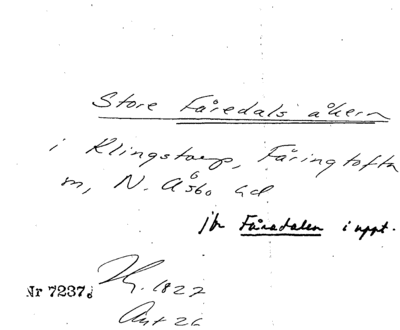 Store Fåredals åkern
i Klingstorp, Färingtofta
sn, N. Åsbo hd
jfr Fåradalen i uppt.
Nr 7237. Hy. 1827
Akt 26